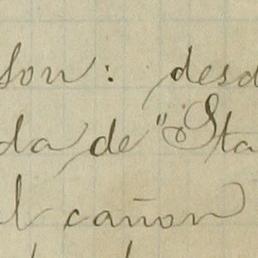 son: desd
da de "Sta
l cañon